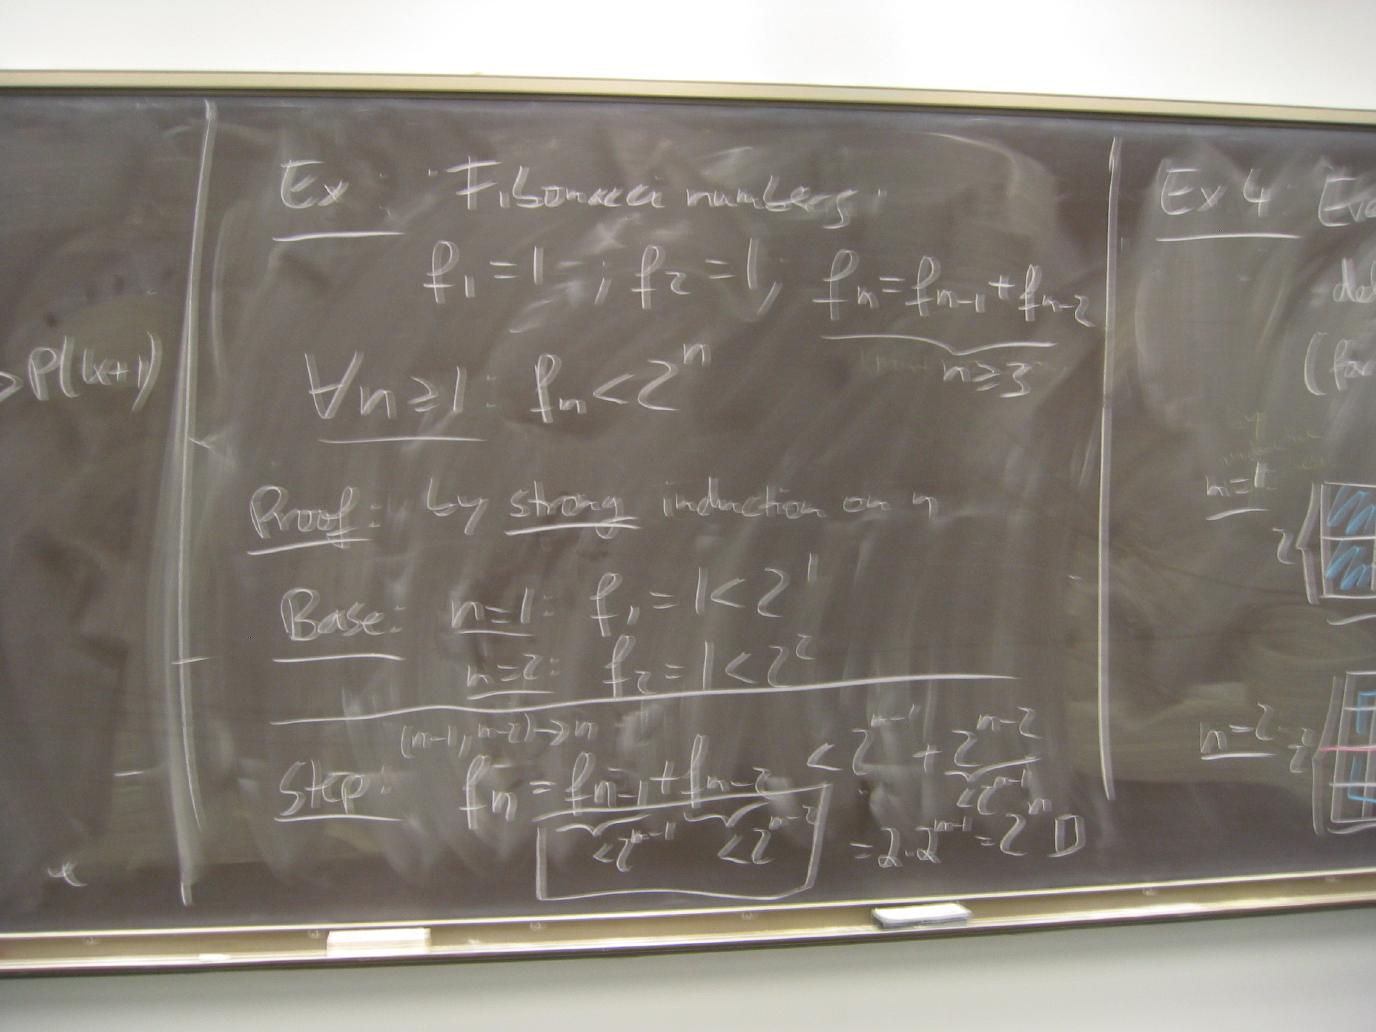 >P(k+1)
Ex: Fibonacci numbers:
f₁ = 1 ; f₂ = 1, fₙ = fₙ₋₁ + fₙ₋₂
n≥3
∀n≥1: fₙ < 2ⁿ
Proof: by strong induction on n
Base: n=1: f₁ = 1 < 2¹
n=2: f₂ = 1 < 2²
(n-1, n-2) → n
Step: fₙ = fₙ₋₁ + fₙ₋₂ < 2ⁿ⁻¹ + 2ⁿ⁻²
<2ⁿ⁻¹ <2ⁿ⁻² <2ⁿ⁻¹
= 2·2ⁿ⁻¹ = 2ⁿ □
Ex 4
n=1
2
n=2
2